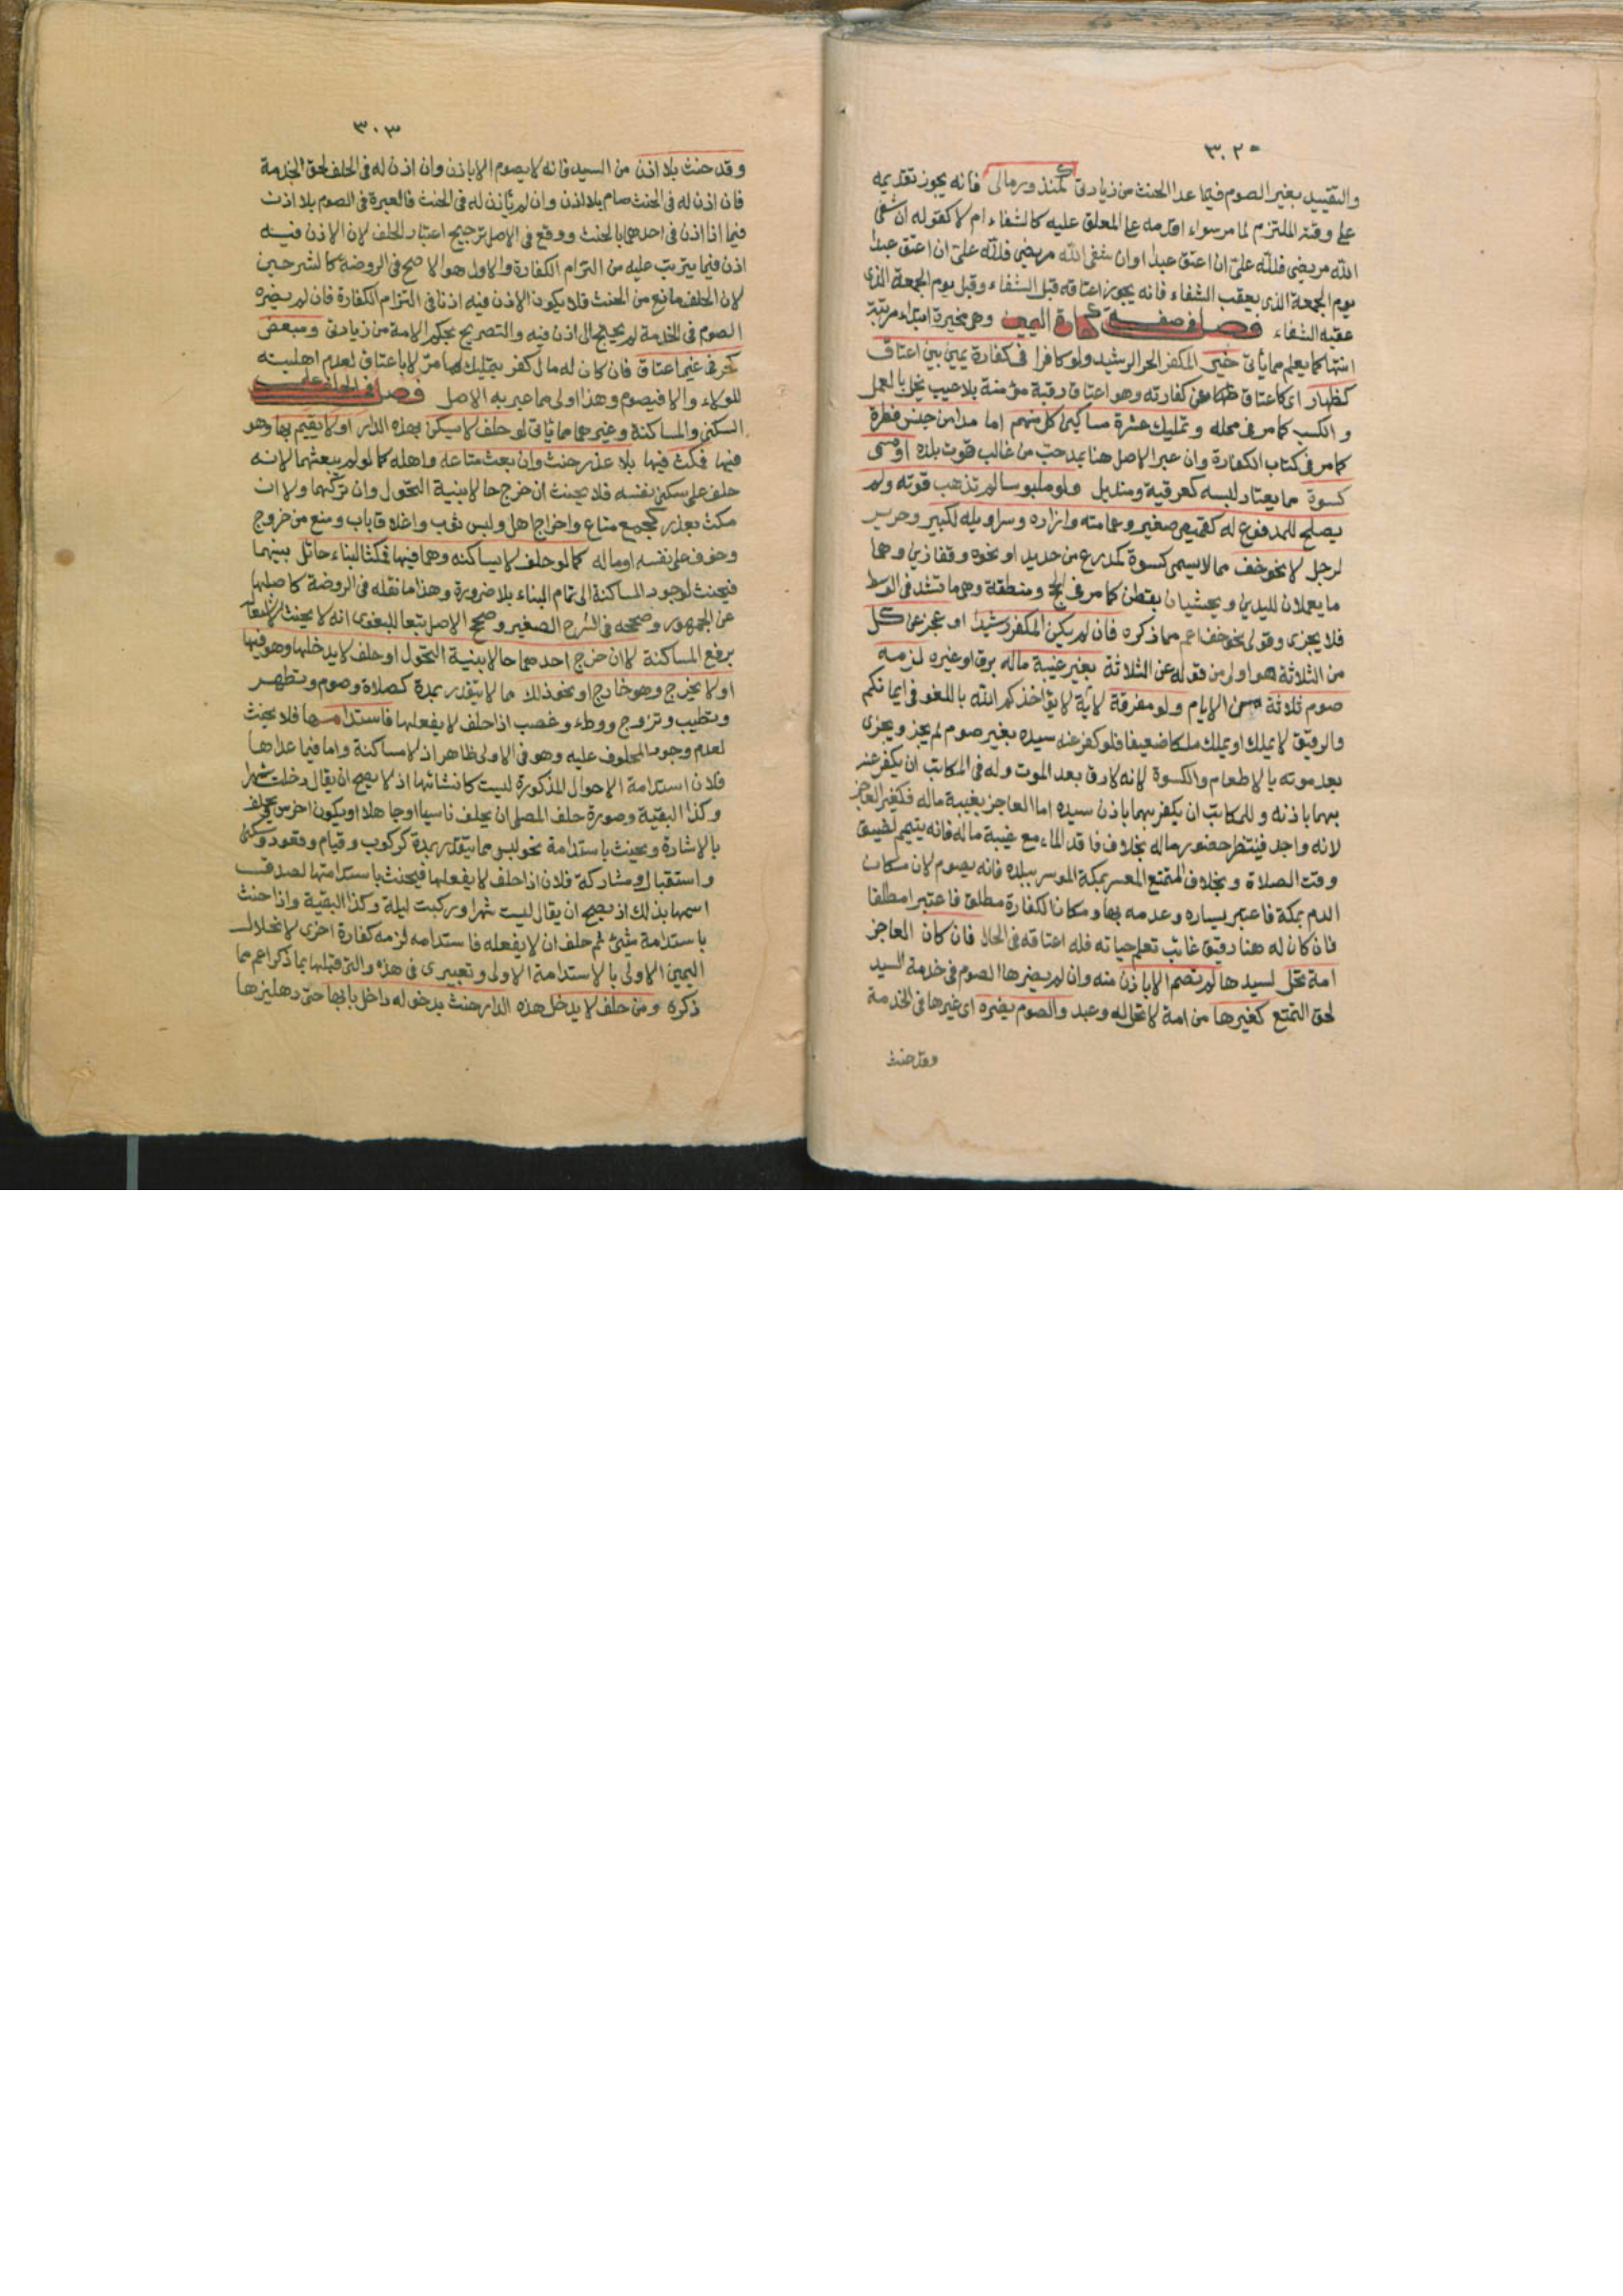 ٣٠٢
والتقييد بغير الصوم فيما عدا الحنث من زيادتى كمنذور مالى فانه يجوز تقديمه
على وقته الملتزم لما مر سواء اقدمه على المعلق عليه كالشفاء ام لا كقوله ان شفى
الله مريضى فلله على ان اعتق عبدا او ان شفى الله مريضى فلله على ان اعتق عبدا
يوم الجمعة الذى يعقب الشفاء فانه يجوز اعتاقه قبل الشفاء وقبل يوم الجمعة الذى
عقبه الشفاء فصل فى صفة كفارة اليمين وهى مخيرة ابتداء مرتبة
انتهاء كما يعلم مما ياتى خير المكفر الحر الرشيد ولو كافرا فى كفارة يمين بين اعتاق
كظهار اى كاعتاق عن كفارته وهو اعتاق رقبة مؤمنة بلا عيب يخل بالعمل
والكسب كما مر فى محله وتمليك عشرة مساكين كل منهم اما مدا من جنس فطرة
كما مر فى كتاب الكفارة وان عبر الاصل هنا بمد حب من غالب قوت بلده او مسمى
كسوة مما يعتاد لبسه كعرقية ومنديل ولو ملبوسا لم تذهب قوته ولم
يصلح للمدفوع له كقميص صغير وعمامته وازاره وسراويله لكبير وحرير
لرجل لا نحو خف مما لا يسمى كسوة كدرع من حديد او نحوه وقفازين وهما
ما يعملان لليدين ويحشيان بقطن كما مر فى الحج ومنطقة وهى ما تشد فى الوسط
فلا يجزى وقولى نحو خف اعم مما ذكره فان لم يكن المكفر رشيدا او عجز عن كل
من الثلاثة هو اولى من قوله عن الثلاثة بغير غيبة ماله برق او غيره لزمه
صوم ثلاثة من الايام ولو مفرقة لاية لا يؤاخذكم الله باللغو فى ايمانكم
والرقيق لا يملك او يملك ملكا ضعيفا فلو كفر عنه سيده بغير صوم لم يجز ويجزى
بعد موته بالاطعام والكسوة لانه لا رق بعد الموت وله فى المكاتب ان يكفر عنه
بهما باذنه وللمكاتب ان يكفر بهما باذن سيده اما العاجز بغيبة ماله فكغير العاجز
لانه واجد فينتظر حضور ماله بخلاف فاقد الماء مع غيبة ماله فانه يتيمم لضيق
وقت الصلاة وبخلاف المتمتع المعسر بمكة الموسر ببلده فانه يصوم لان مكان
الدم بمكة فاعتبر يساره وعدمه بها ومكان الكفارة مطلق فاعتبر مطلقا
فان كان له هنا رقيق غائب تعلم حياته فله اعتاقه فى الحال فان كان العاجز
امة تحل لسيدها لم تصم الا باذن منه وان لم يضرها الصوم فى خدمة السيد
لحق التمتع كغيرها من امة لا تحل له وعبد والصوم يضره اى غيرها فى الخدمة
وقد حنث
٣٠٣
وقد حنث بلا اذن من السيد فانه لا يصوم الا باذن وان اذن له فى الحلف لحق الخدمة
فان اذن له فى الحنث صام بلا اذن وان لم يأذن له فى الحنث فالعبرة فى الصوم بلا اذن
فيما اذا اذن فى احدهما بالحنث ووقع فى الاصل ترجيح اعتبار الحلف لان الاذن فيه
اذن فيما يترتب عليه من التزام الكفارة والاول هو الاصح فى الروضة كالشرحين
لان الحلف مانع من الحنث فلا يكون الاذن فيه اذنا فى التزام الكفارة فان لم يضره
الصوم فى الخدمة لم يحتج الى اذن فيه والتصريح بحكم الامة من زيادتى ومبعض
كحر فى غير اعتاق فان كان له مال كفر بتمليك مما مر لا باعتاق لعدم اهليته
للولاء والا فيصوم وهذا اولى مما عبر به الاصل فصل فى الحلف على
السكنى والمساكنة وغيرهما مما ياتى لو حلف لا يسكن بهذه الدار او لا يقيم بها وهو
فيها فمكث فيها بلا عذر حنث وان بعث متاعه واهله كما لو لم يبعثهما لانه
حلف على سكنى نفسه فلا يحنث ان خرج حالا بنية التحول وان تركهما ولا ان
مكث بعذر كجمع متاع واخراج اهل ولبس ثوب واغلاق باب ومنع من خروج
وخوف على نفسه او ماله كما لو حلف لا يساكنه وهما فيها فمكثا لبناء حائل بينهما
فيحنث لوجود المساكنة الى تمام البناء بلا ضرورة وهذا ما نقله فى الروضة كاصلها
عن الجمهور وصححه فى الشرح الصغير وصحح الاصل تبعا للبغوى انه لا يحنث لاشتغاله
برفع المساكنة لا ان خرج احدهما حالا بنية التحول او حلف لا يدخلها وهو فيها
او لا يخرج وهو خارج او نحو ذلك مما لا يتقدر بمدة كصلاة وصوم وتطهر
وتطيب وتزوج ووطء وغصب اذا حلف لا يفعلها فاستدامها فلا يحنث
لعدم وجود المحلوف عليه وهو فى الاولى ظاهر اذ لا مساكنة واما فيما عداها
فلان استدامة الاحوال المذكورة ليست كانشائها اذ لا يصح ان يقال دخلت شهرا
وكذا البقية وصورة حلف المصلى ان يحلف ناسيا او جاهلا او يكون اخرس يحلف
بالاشارة ويحنث باستدامة نحو لبس مما يتقدر بمدة كركوب وقيام وقعود وسكنى
واستقبال ومشاركة فلان اذا حلف لا يفعلها فيحنث باستدامتها لصدق
اسمها بذلك اذ يصح ان يقال لبست شهرا وركبت ليلة وكذا البقية واذا حنث
باستدامة شئ ثم حلف ان لا يفعله فاستدامه لزمه كفارة اخرى لانحلال
اليمين الاولى بالاستدامة الاولى وتعبيرى فى هذه والتى قبلها بما ذكر اعم مما
ذكره ومن حلف لا يدخل هذه الدار حنث بدخوله داخل بابها حتى دهليزها